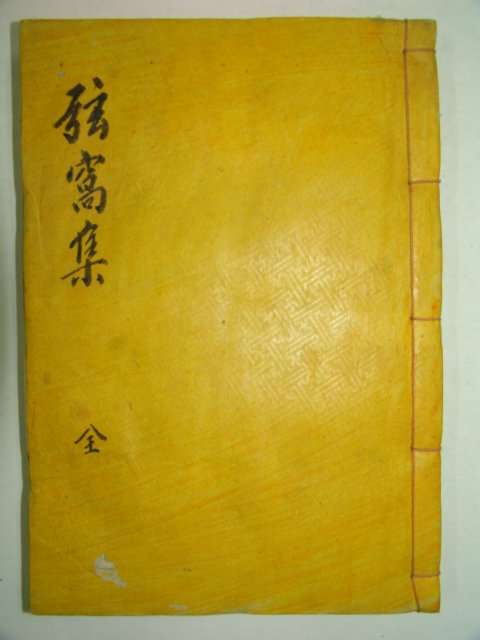 弦窩集
全